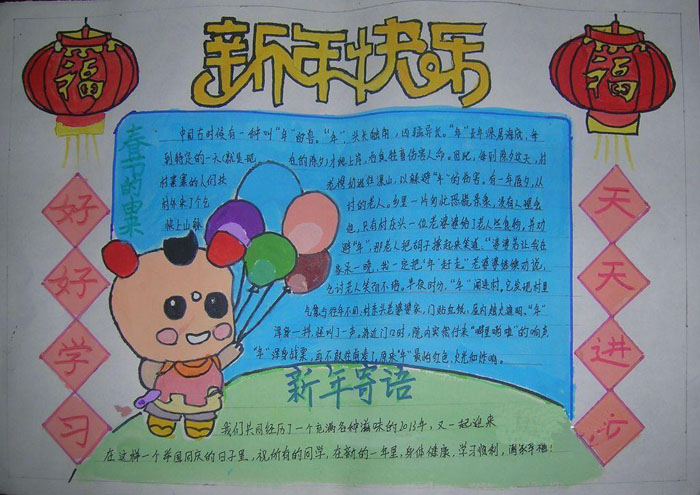 新年快乐
福
福
春节的由来
好好学习
天天进步
中国古时候有一种叫"年"的兽。"年"，头长触角，凶猛异长。"年"长年深居海底，每
到特定的一天就是
的除夕才爬上岸，
伤害人命。因此，每到除夕这天，村
村寨寨的人们
老携幼逃往深山，以躲避"年"的伤害。有一年除夕，从
村外来了个
讨的老人。乡里一片匆忙恐慌景象，没有人理会
他，只有村东头一位老婆婆给了老人些食物，并劝
避"年"，那老人把胡子撩起来笑道："婆婆若让我在
家呆一晚，我一定把"年"赶走。"老婆婆继续劝说，
乞讨老人笑而不语。半夜时分，"年"闯进村，它发现村里
气象与往年不同，村东头老婆婆家，门贴红纸，屋内烛火通明。"年"
浑身一抖，怪叫了一声。将近门口时，院内突然传来"啪里啪啦"的响声
"年"浑身战栗，再不敢往前凑了，原来"年"最怕红色、火光和炸响。
新年寄语
我们共同经历了一个充满各种滋味的2013年，又一起迎来
在这样一个举国同庆的日子里，祝所有的同学，在新的一年里，身体健康，学习顺利，阖家幸福！